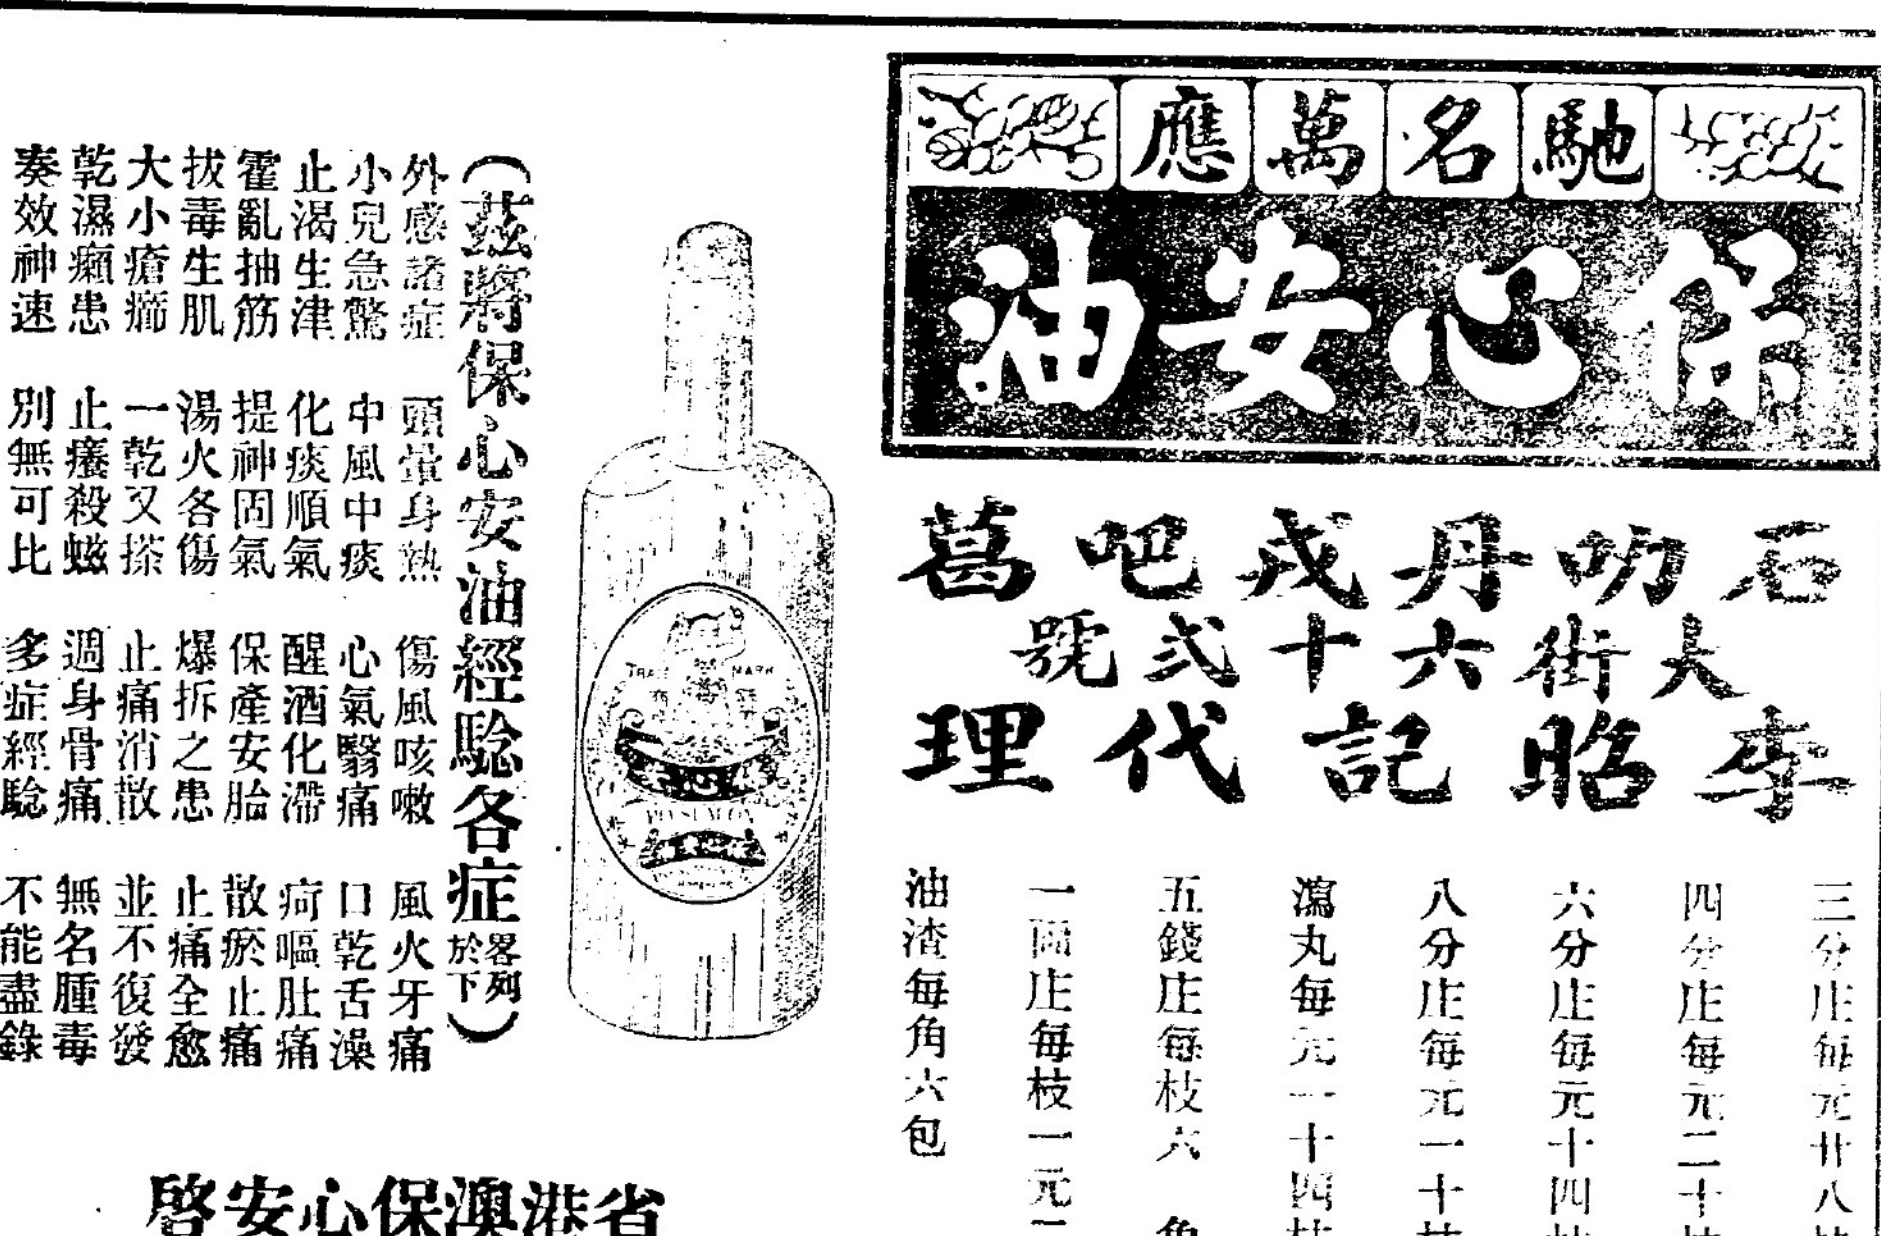 馳名萬應
保心安油
石叻丹戎吧葛
大街六十弍號
李昭記代理
三分庄每元廿八
四分庄每元二十
六分庄每元十四枝
八分庄每元一十枝
瀉丸每元一十四枝
五錢庄每枝六角
一兩庄每枝一元二
油渣每角六包
TRADE MARK
保心安
PO SUM ON
(茲將保心安油經驗各症畧列於下)
外感諸症 頭暈身熱 傷風咳嗽 風火牙痛
小兒急驚 中風中痰 心氣翳痛 口乾舌燥
止渴生津 化痰順氣 醒酒化滯 疴嘔肚痛
霍亂抽筋 提神固氣 保產安胎 散瘀止痛
拔毒生肌 湯火各傷 爆拆之患 止痛全愈
大小瘡癤 一乾又搽 止痛消散 並不復發
乾濕癩患 止癢殺蟣 週身骨痛 無名腫毒
奏效神速 別無可比 多症經驗 不能盡錄
省港澳保心安啓